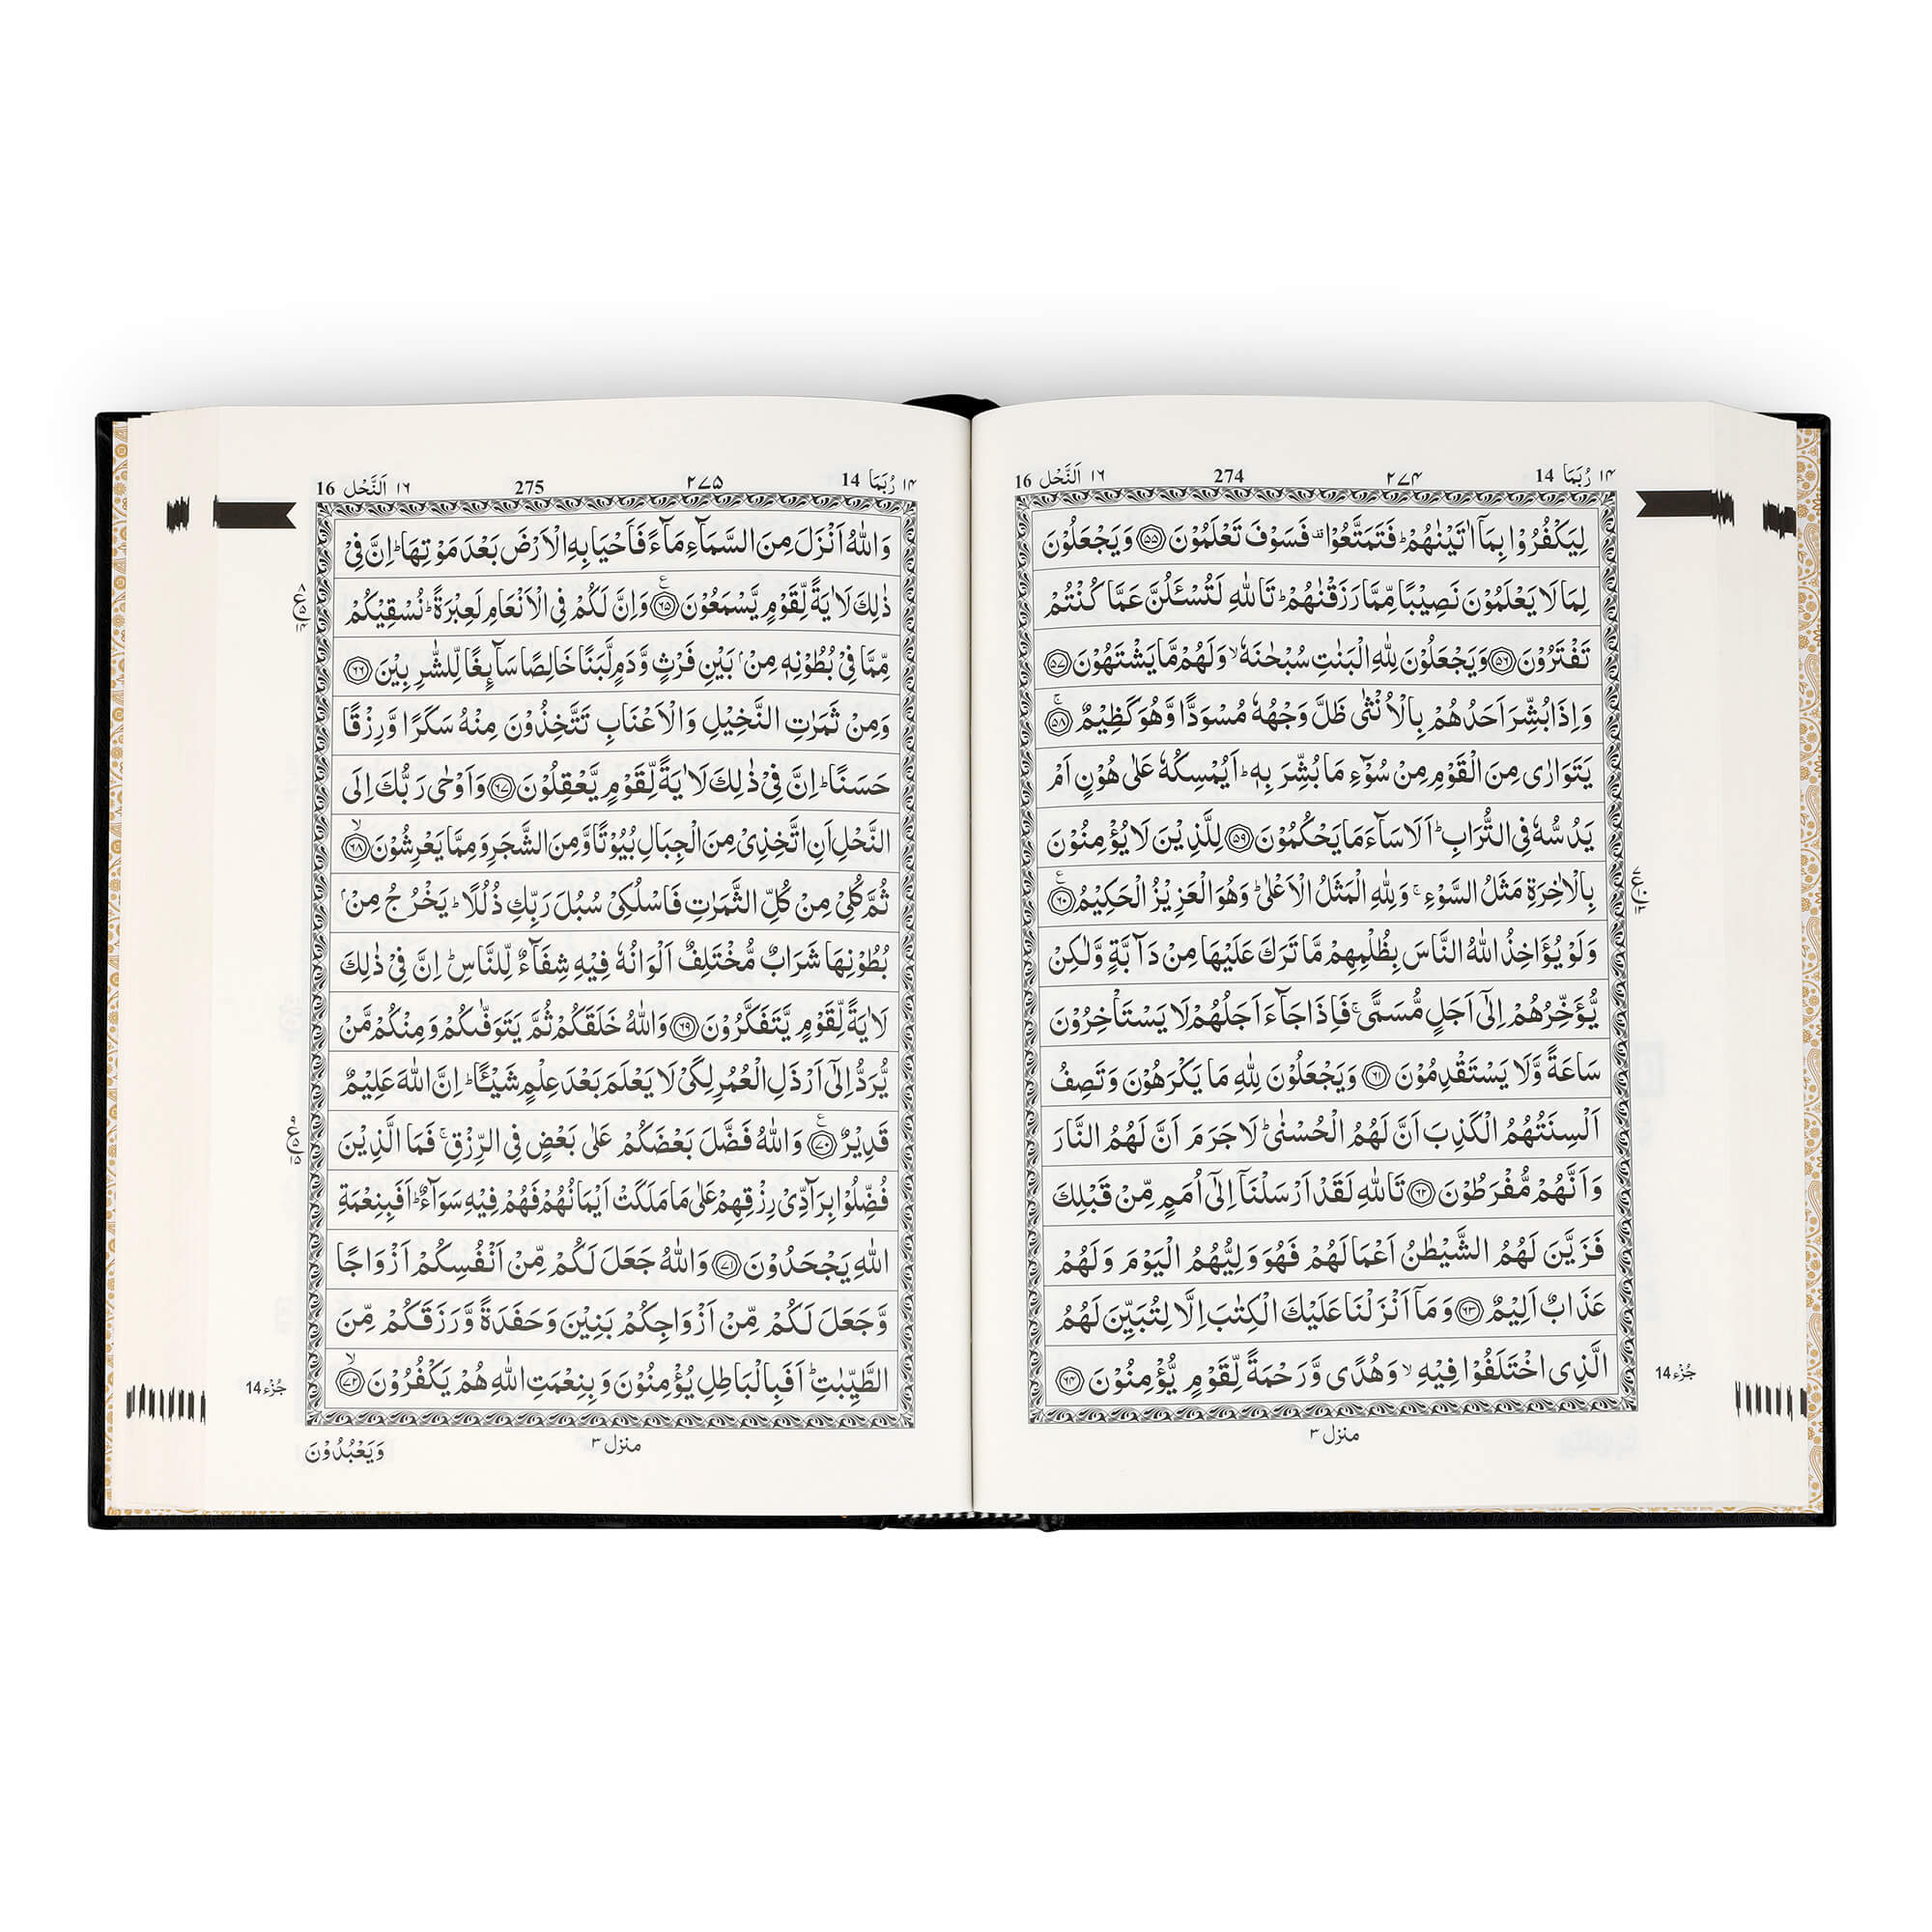 ١٤ رُبَمَا 14 ٢٧٤ 274 ١٦ اَلنَّحْل 16
لِيَكْفُرُوْا بِمَاۤ اٰتَيْنٰهُمْ ؕ فَتَمَتَّعُوْا ۫ فَسَوْفَ تَعْلَمُوْنَ ۝٥٥ وَيَجْعَلُوْنَ
لِمَا لَا يَعْلَمُوْنَ نَصِيْبًا مِّمَّا رَزَقْنٰهُمْ ؕ تَاللّٰهِ لَتُسْـَٔلُنَّ عَمَّا كُنْتُمْ
تَفْتَرُوْنَ ۝٥٦ وَيَجْعَلُوْنَ لِلّٰهِ الْبَنٰتِ سُبْحٰنَهٗ ۙ وَلَهُمْ مَّا يَشْتَهُوْنَ ۝٥٧
وَاِذَا بُشِّرَ اَحَدُهُمْ بِالْاُنْثٰى ظَلَّ وَجْهُهٗ مُسْوَدًّا وَّهُوَ كَظِيْمٌ ۚ ۝٥٨
يَتَوَارٰى مِنَ الْقَوْمِ مِنْ سُوْٓءِ مَا بُشِّرَ بِهٖ ؕ اَيُمْسِكُهٗ عَلٰى هُوْنٍ اَمْ
يَدُسُّهٗ فِى التُّرَابِ ؕ اَلَا سَآءَ مَا يَحْكُمُوْنَ ۝٥٩ لِلَّذِيْنَ لَا يُؤْمِنُوْنَ
بِالْاٰخِرَةِ مَثَلُ السَّوْءِ ۚ وَلِلّٰهِ الْمَثَلُ الْاَعْلٰى ؕ وَهُوَ الْعَزِيْزُ الْحَكِيْمُ ۝٦٠
وَلَوْ يُؤَاخِذُ اللّٰهُ النَّاسَ بِظُلْمِهِمْ مَّا تَرَكَ عَلَيْهَا مِنْ دَآبَّةٍ وَّلٰكِنْ
يُّؤَخِّرُهُمْ اِلٰٓى اَجَلٍ مُّسَمًّى ۚ فَاِذَا جَآءَ اَجَلُهُمْ لَا يَسْتَاْخِرُوْنَ
سَاعَةً وَّلَا يَسْتَقْدِمُوْنَ ۝٦١ وَيَجْعَلُوْنَ لِلّٰهِ مَا يَكْرَهُوْنَ وَتَصِفُ
اَلْسِنَتُهُمُ الْكَذِبَ اَنَّ لَهُمُ الْحُسْنٰى ؕ لَا جَرَمَ اَنَّ لَهُمُ النَّارَ
وَاَنَّهُمْ مُّفْرَطُوْنَ ۝٦٢ تَاللّٰهِ لَقَدْ اَرْسَلْنَاۤ اِلٰٓى اُمَمٍ مِّنْ قَبْلِكَ
فَزَيَّنَ لَهُمُ الشَّيْطٰنُ اَعْمَالَهُمْ فَهُوَ وَلِيُّهُمُ الْيَوْمَ وَلَهُمْ
عَذَابٌ اَلِيْمٌ ۝٦٣ وَمَاۤ اَنْزَلْنَا عَلَيْكَ الْكِتٰبَ اِلَّا لِتُبَيِّنَ لَهُمُ
الَّذِى اخْتَلَفُوْا فِيْهِ ۙ وَهُدًى وَّرَحْمَةً لِّقَوْمٍ يُّؤْمِنُوْنَ ۝٦٤
جُزْء 14
منزل ٣
١٤ رُبَمَا 14 ٢٧٥ 275 ١٦ اَلنَّحْل 16
وَاللّٰهُ اَنْزَلَ مِنَ السَّمَآءِ مَآءً فَاَحْيَا بِهِ الْاَرْضَ بَعْدَ مَوْتِهَا ؕ اِنَّ فِيْ
ذٰلِكَ لَاٰيَةً لِّقَوْمٍ يَّسْمَعُوْنَ ۝٦٥ وَاِنَّ لَكُمْ فِى الْاَنْعَامِ لَعِبْرَةً ؕ نُسْقِيْكُمْ
مِّمَّا فِيْ بُطُوْنِهٖ مِنْۢ بَيْنِ فَرْثٍ وَّدَمٍ لَّبَنًا خَالِصًا سَآئِغًا لِّلشّٰرِبِيْنَ ۝٦٦
وَمِنْ ثَمَرٰتِ النَّخِيْلِ وَالْاَعْنَابِ تَتَّخِذُوْنَ مِنْهُ سَكَرًا وَّرِزْقًا
حَسَنًا ؕ اِنَّ فِيْ ذٰلِكَ لَاٰيَةً لِّقَوْمٍ يَّعْقِلُوْنَ ۝٦٧ وَاَوْحٰى رَبُّكَ اِلَى
النَّحْلِ اَنِ اتَّخِذِيْ مِنَ الْجِبَالِ بُيُوْتًا وَّمِنَ الشَّجَرِ وَمِمَّا يَعْرِشُوْنَ ۙ ۝٦٨
ثُمَّ كُلِيْ مِنْ كُلِّ الثَّمَرٰتِ فَاسْلُكِيْ سُبُلَ رَبِّكِ ذُلُلًا ؕ يَخْرُجُ مِنْۢ
بُطُوْنِهَا شَرَابٌ مُّخْتَلِفٌ اَلْوَانُهٗ فِيْهِ شِفَآءٌ لِّلنَّاسِ ؕ اِنَّ فِيْ ذٰلِكَ
لَاٰيَةً لِّقَوْمٍ يَّتَفَكَّرُوْنَ ۝٦٩ وَاللّٰهُ خَلَقَكُمْ ثُمَّ يَتَوَفّٰىكُمْ وَمِنْكُمْ مَّنْ
يُّرَدُّ اِلٰٓى اَرْذَلِ الْعُمُرِ لِكَيْ لَا يَعْلَمَ بَعْدَ عِلْمٍ شَيْـًٔا ؕ اِنَّ اللّٰهَ عَلِيْمٌ
قَدِيْرٌ ۝٧٠ وَاللّٰهُ فَضَّلَ بَعْضَكُمْ عَلٰى بَعْضٍ فِى الرِّزْقِ ۚ فَمَا الَّذِيْنَ
فُضِّلُوْا بِرَآدِّيْ رِزْقِهِمْ عَلٰى مَا مَلَكَتْ اَيْمَانُهُمْ فَهُمْ فِيْهِ سَوَآءٌ ؕ اَفَبِنِعْمَةِ
اللّٰهِ يَجْحَدُوْنَ ۝٧١ وَاللّٰهُ جَعَلَ لَكُمْ مِّنْ اَنْفُسِكُمْ اَزْوَاجًا
وَّجَعَلَ لَكُمْ مِّنْ اَزْوَاجِكُمْ بَنِيْنَ وَحَفَدَةً وَّرَزَقَكُمْ مِّنَ
الطَّيِّبٰتِ ؕ اَفَبِالْبَاطِلِ يُؤْمِنُوْنَ وَبِنِعْمَتِ اللّٰهِ هُمْ يَكْفُرُوْنَ ۙ ۝٧٢
جُزْء 14
منزل ٣
وَيَعْبُدُوْنَ